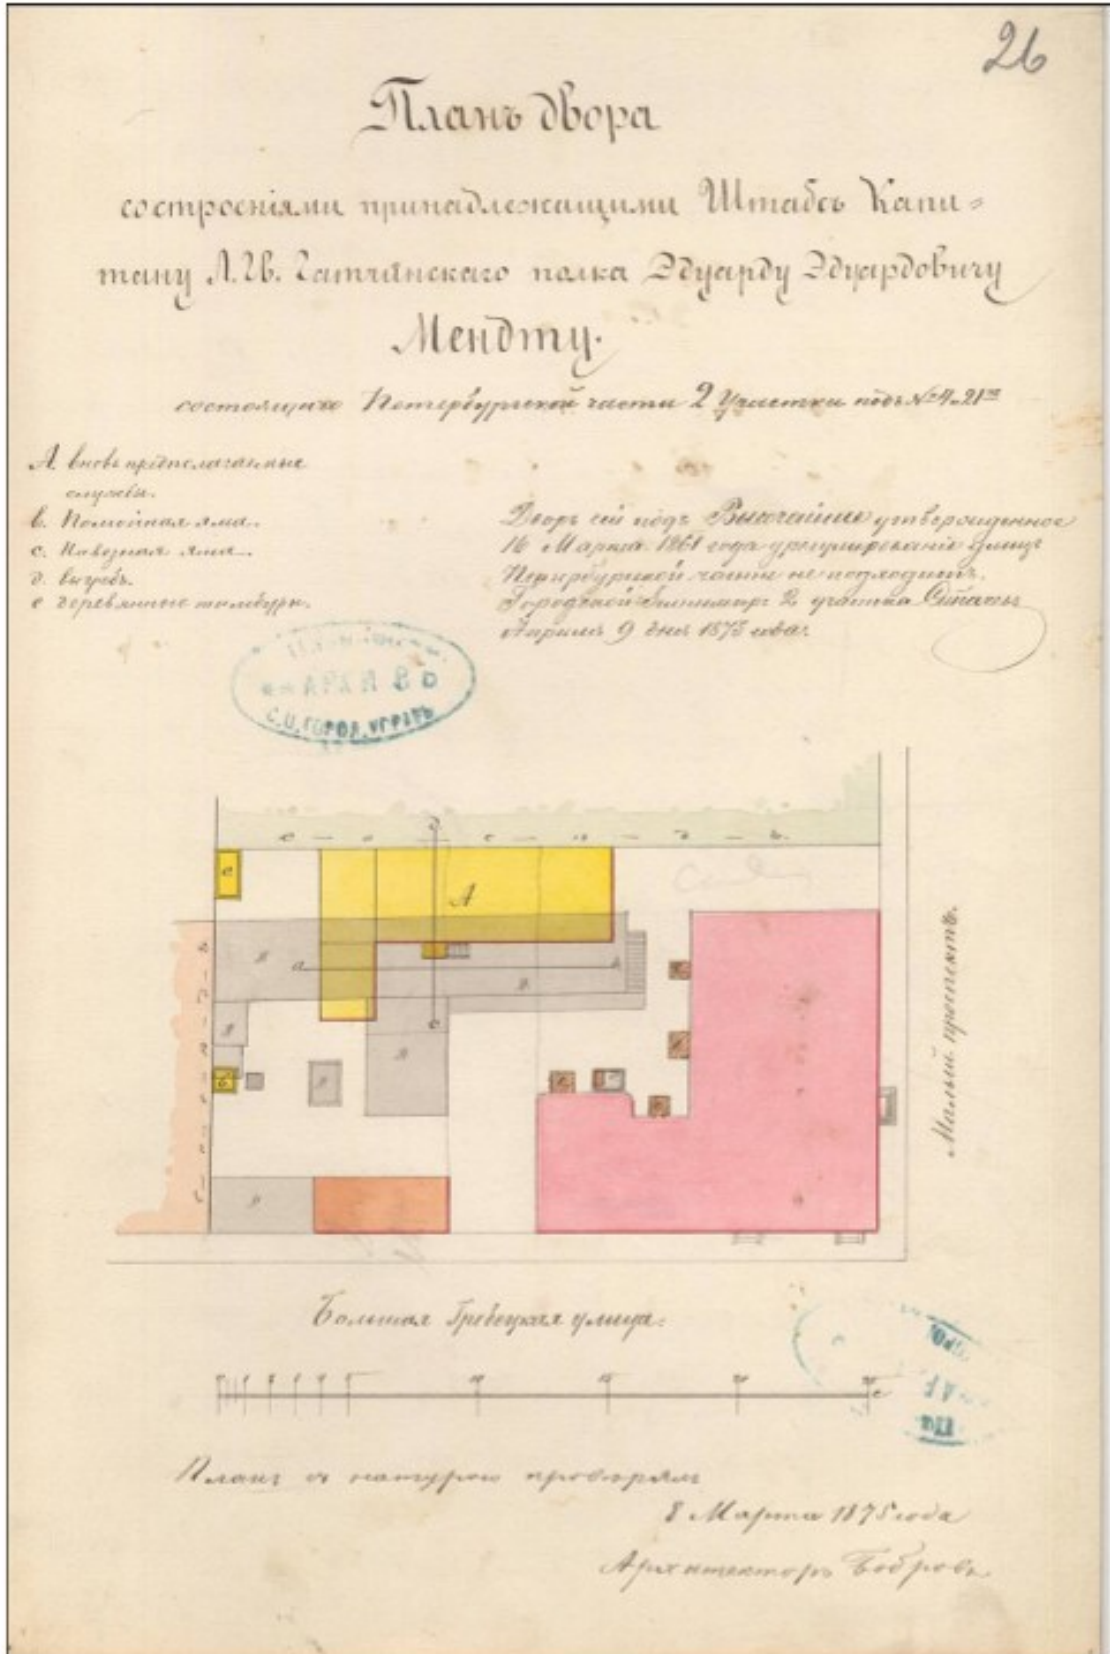 26
Планъ двора
состроенiями принадлежащими Штабсъ Капи=
тану Л. Гв. Гатчинскаго полка Эдуарду Эдуардовичу
Мендту.
состоящаго Петербургской части 2 Участка подъ №
А. вновь предполагаемые
службы.
в. Помойная яма.
с. Навозная яма.
д. выгребъ.
е деревянные тамбуры.
Дворъ сей подъ Высочайше утвержденное
16 Марта 1861 года урегулированiе улицъ
Петербургской части не подходитъ.
Городской 2 участка
Апреля 9 дня 1875 года.
С.П. ГОРОД. УПРАВЪ
с о с ѣ д ъ.
А
Малый проспектъ.
Большая Гребецкая улица.
Планъ съ натурою проверялъ
8 Марта 1875 года
Архитекторъ Бобровъ